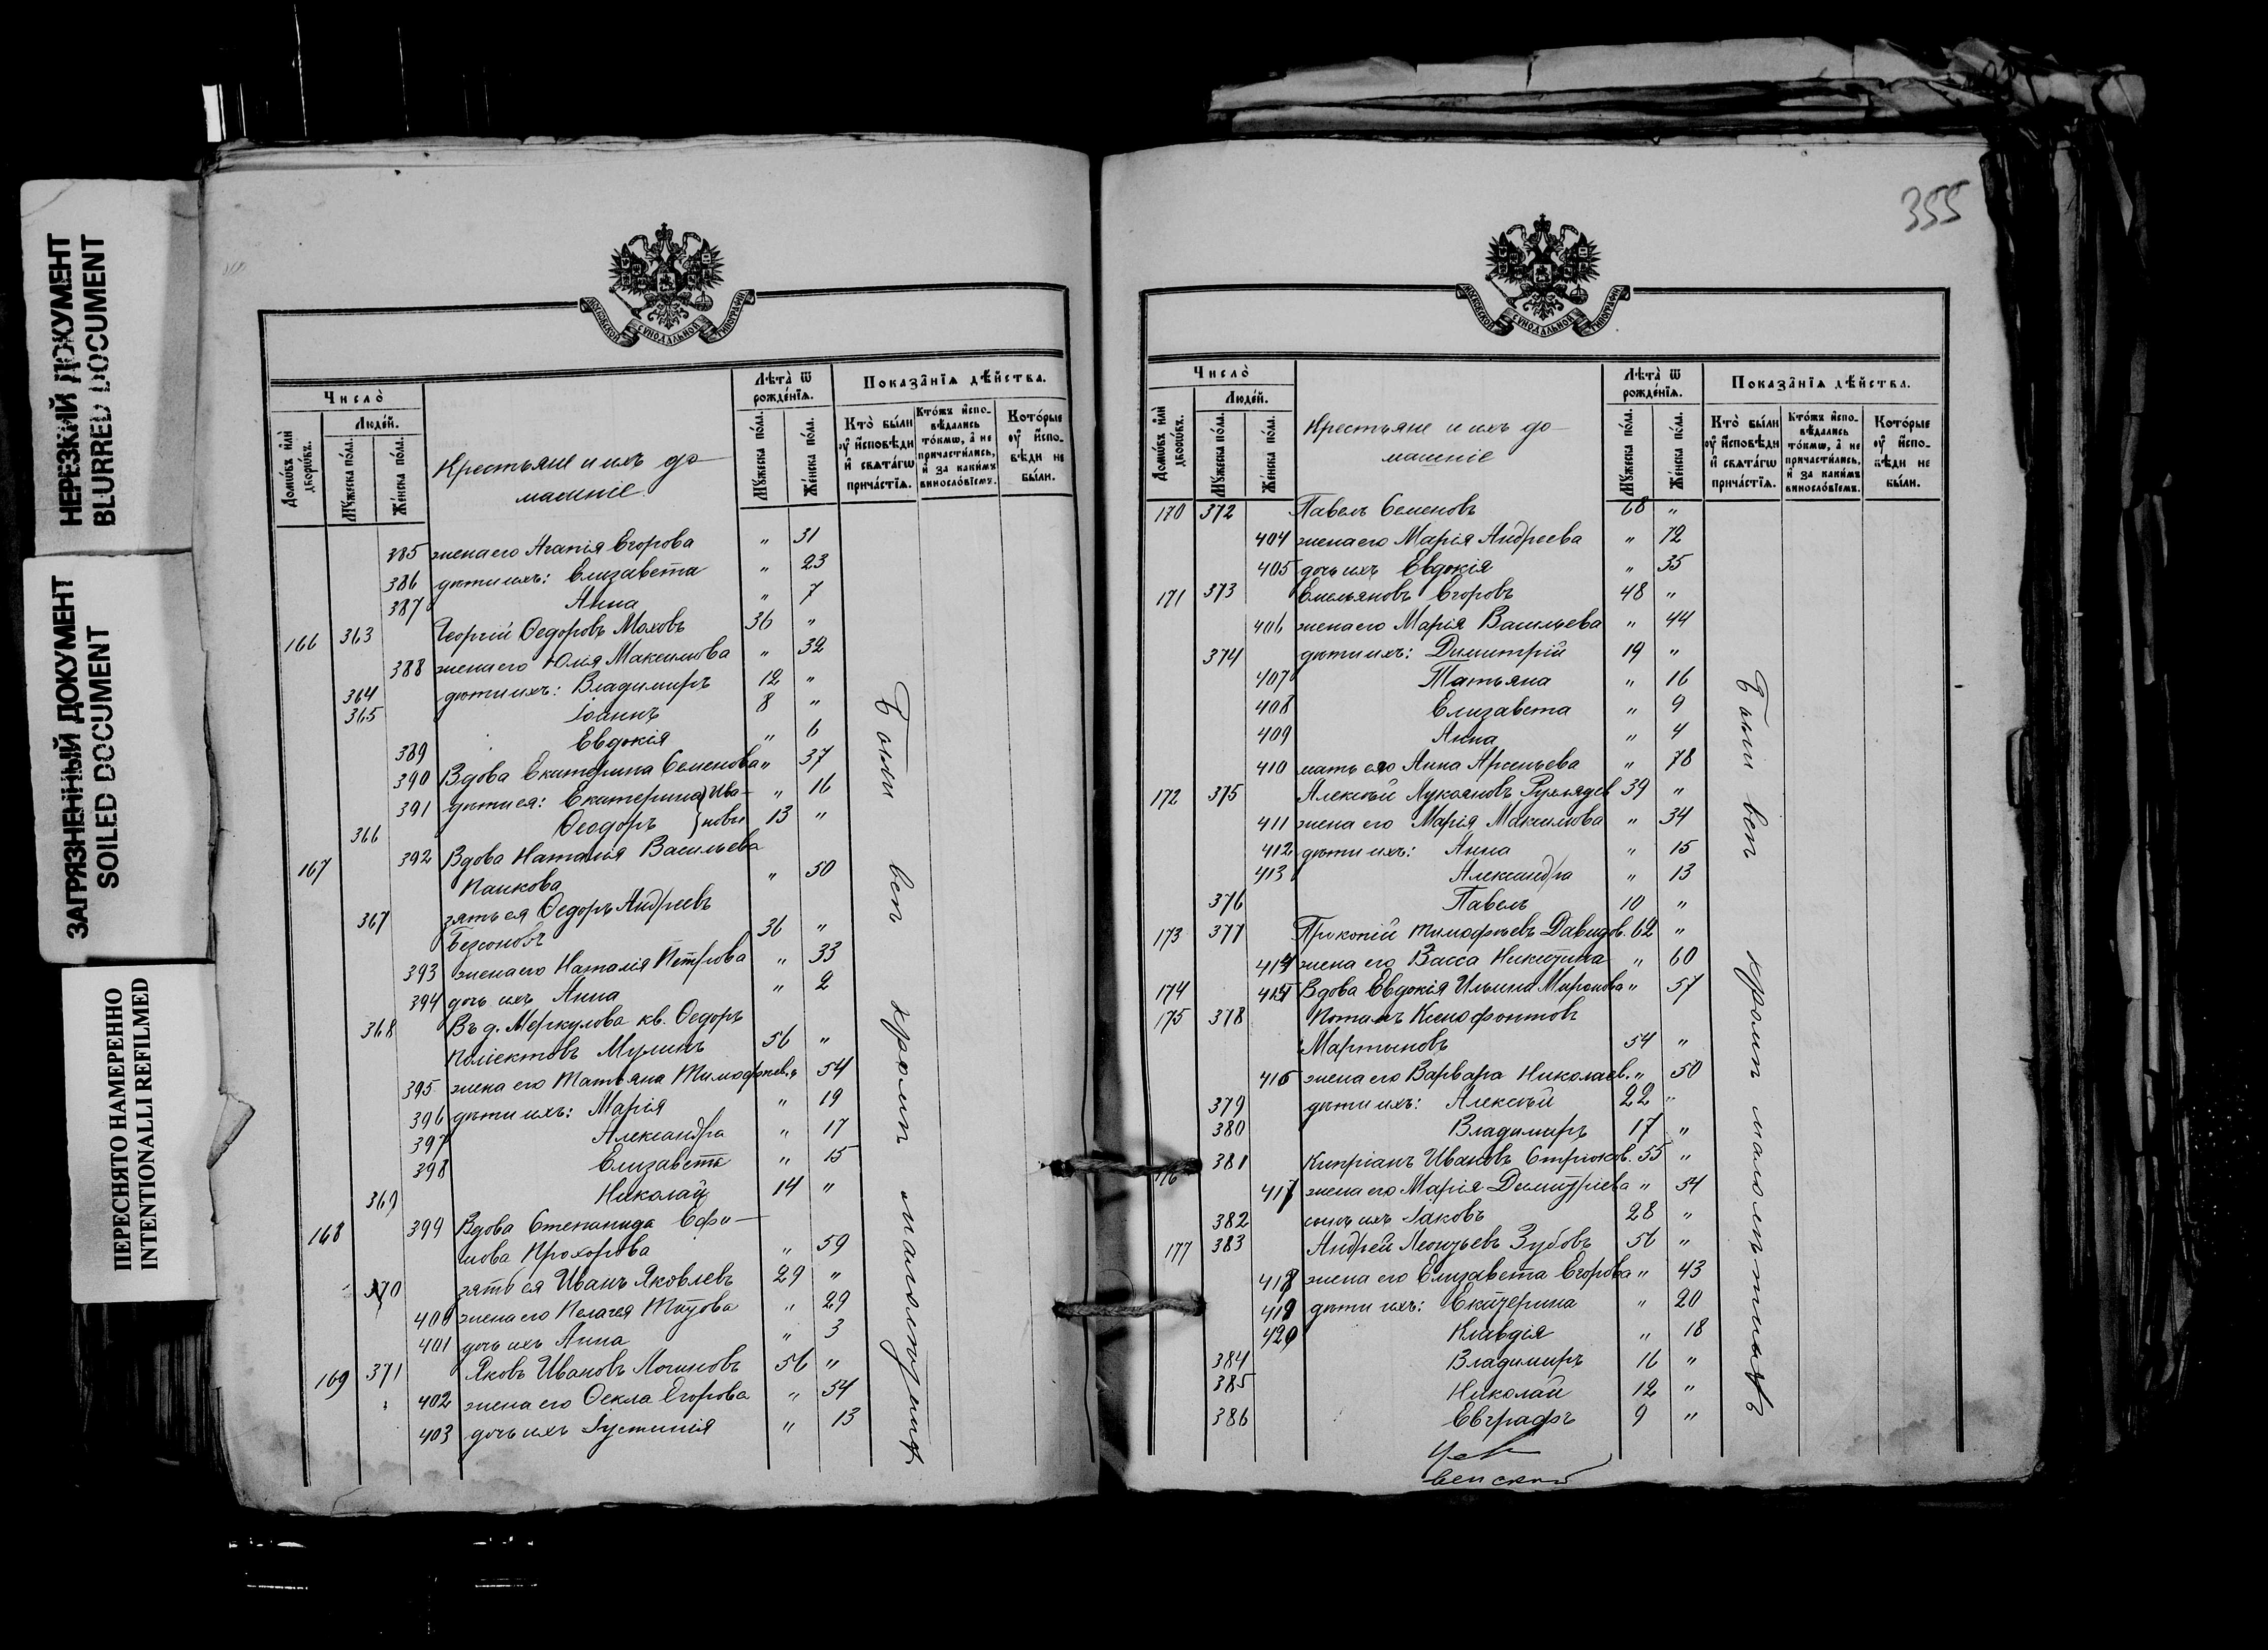 НЕРЕЗКИЙ ДОКУМЕНТ
BLURRED DOCUMENT
ЗАГРЯЗНЕННЫЙ ДОКУМЕНТ
SOILED DOCUMENT
ПЕРЕСНЯТО НАМЕРЕННО
INTENTIONALLI REFILMED
МОСКОВСКОЙ СУНОДАЛЬНОЙ ТИПОГРАФИИ
Число̀
Домѡ́въ и҆лѝ дворѡ́въ.
Люде́й.
Мꙋ́жеска по́ла.
Же́нска по́ла.
Крестьяне и ихъ до-
машніе
Лѣта̀ ѿ рожде́нїѧ.
Мꙋ́жеска по́ла.
Же́нска по́ла.
Показа̑нїѧ дѣ́йства.
Кто̀ бы́ли ᲂу҆ и҆сповѣ́ди и҆ свѧта́гѡ прича́стїѧ.
Кто́жъ и҆сповѣ́дались то́кмѡ, а҆ не причасти́лись, и҆ за каки́мъ виносло́вїемъ.
Кото́рые ᲂу҆ и҆сповѣ́ди не бы́ли.
385 жена его Агапія Егорова " 31
386 дѣти ихъ: Елизавета " 23
387 Анна " 7
166 363 Георгій Ѳедоровъ Моховъ 36 "
388 жена его Юлія Максимова " 32
364 дѣти ихъ: Владимиръ 12 "
365 Іоаннъ 8 "
389 Евдокія " 6
390 Вдова Екатерина Семенова " 37
391 дѣти ея: Екатерина } Ива- " 16
366 Ѳеодоръ } новы 13 "
167 392 Вдова Наталія Васильева
Панкова " 50
367 зять ея Ѳедоръ Андреевъ
Безсоновъ 36 "
393 жена его Наталія Петрова " 33
394 дочь ихъ Анна " 2
368 Въ д. Меркулова кв. Ѳедоръ
Поліектовъ Мулинъ 56 "
395 жена его Татьяна Тимофѣев. " 54
396 дѣти ихъ: Марія " 19
397 Александра " 17
398 Елизавета " 15
369 Николай 14 "
168 399 Вдова Степанида Ефи-
мова Прохорова " 59
370 зять ея Иванъ Яковлевъ 29 "
400 жена его Пелагея Титова " 29
401 дочь ихъ Анна " 3
169 371 Яковъ Ивановъ Логиновъ 56 "
402 жена его Ѳекла Егорова " 54
403 дочь ихъ Іустинія " 13
Были всѣ кромѣ малолѣтнихъ
355
МОСКОВСКОЙ СУНОДАЛЬНОЙ ТИПОГРАФИИ
Число̀
Домѡ́въ и҆лѝ дворѡ́въ.
Люде́й.
Мꙋ́жеска по́ла.
Же́нска по́ла.
Крестьяне и ихъ до-
машніе
Лѣта̀ ѿ рожде́нїѧ.
Мꙋ́жеска по́ла.
Же́нска по́ла.
Показа̑нїѧ дѣ́йства.
Кто̀ бы́ли ᲂу҆ и҆сповѣ́ди и҆ свѧта́гѡ прича́стїѧ.
Кто́жъ и҆сповѣ́дались то́кмѡ, а҆ не причасти́лись, и҆ за каки́мъ виносло́вїемъ.
Кото́рые ᲂу҆ и҆сповѣ́ди не бы́ли.
170 372 Павелъ Семеновъ 68 "
404 жена его Марія Андреева " 72
405 дочь ихъ Евдокія " 35
171 373 Емельяновъ Егоровъ 48 "
406 жена его Марія Васильева " 44
374 дѣти ихъ: Димитрій 19 "
407 Татьяна " 16
408 Елизавета " 9
409 Анна " 4
410 мать его Анна Арсеньева " 78
172 375 Алексѣй Лукояновъ Рухлядев 39 "
411 жена его Марія Максимова " 34
412 дѣти ихъ: Анна " 15
413 Александра " 13
376 Павелъ 10 "
173 377 Прокопій Тимофѣевъ Давыдов. 62 "
414 жена его Васса Никитина " 60
174 415 Вдова Евдокія Ильина Миронова " 57
175 378 Потапъ Ксенофонтовъ
Мартыновъ 54 "
416 жена его Варвара Николаев. " 50
379 дѣти ихъ: Алексѣй 22 "
380 Владимиръ 17 "
176 381 Кипріанъ Ивановъ Стрюков. 55 "
417 жена его Марія Димитріева " 54
382 сынъ ихъ Іаковъ 28 "
177 383 Андрей Леонтьевъ Зубовъ 56 "
418 жена его Елизавета Егорова " 43
419 дѣти ихъ: Екатерина " 20
420 Клавдія " 18
384 Владимиръ 16 "
385 Николай 12 "
386 Евграфъ 9 "
Были всѣ кромѣ малолѣтнихъ